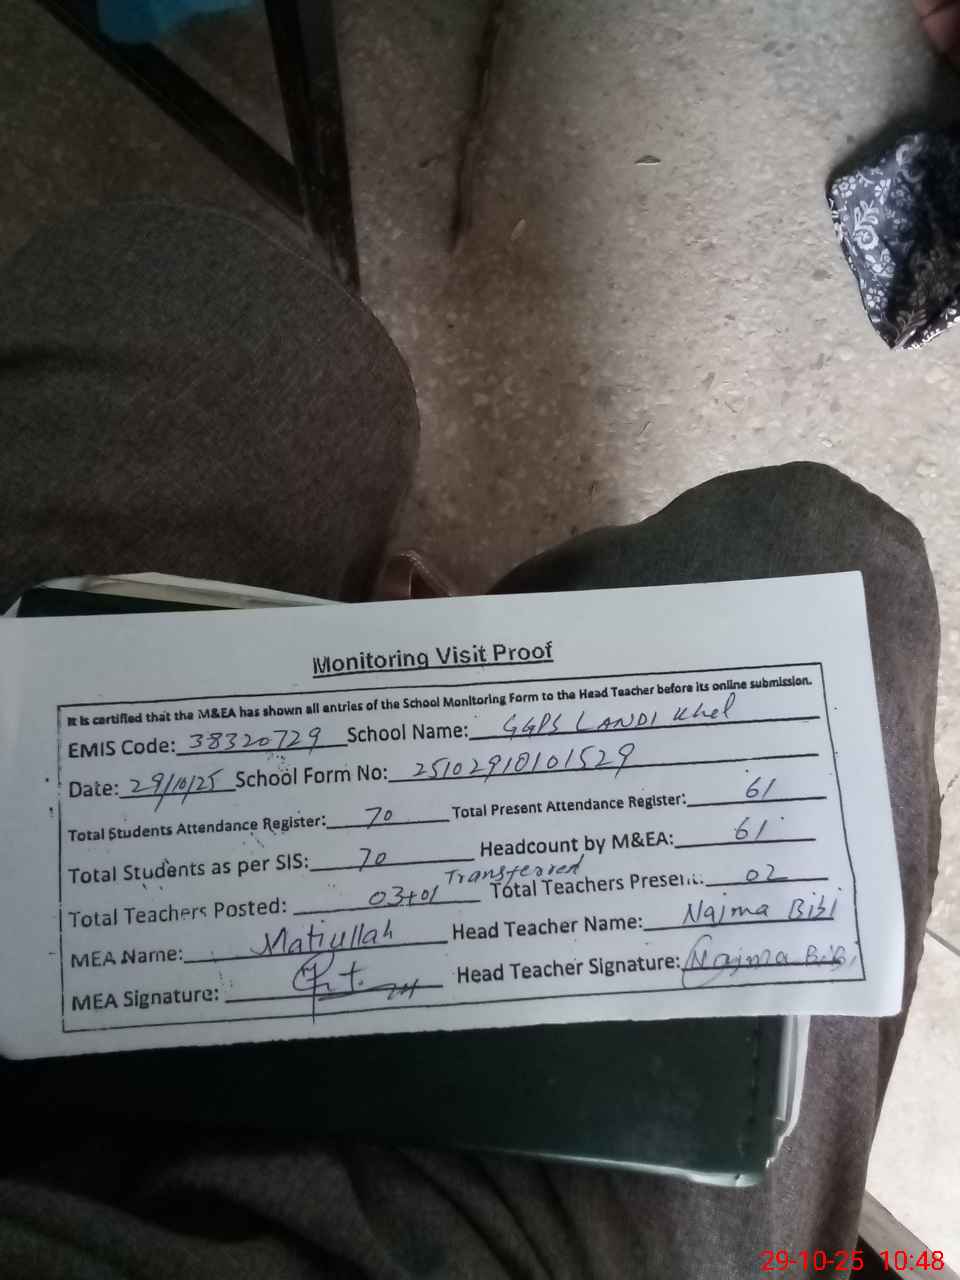 Monitoring Visit Proof
It is certified that the M&EA has shown all entries of the School Monitoring Form to the Head Teacher before its online submission.
EMIS Code: 38320729 School Name: GGPS LANDI Khel
Date: 29/10/25 School Form No: 25102910101529
Total Students Attendance Register: 70 Total Present Attendance Register: 61
Total Students as per SIS: 70 Headcount by M&EA: 61
Total Teachers Posted: 03+01 Transferred Total Teachers Present: 02
MEA Name: Matiullah Head Teacher Name: Najma Bibi
MEA Signature: Head Teacher Signature: Najma Bibi
29-10-25 10:48